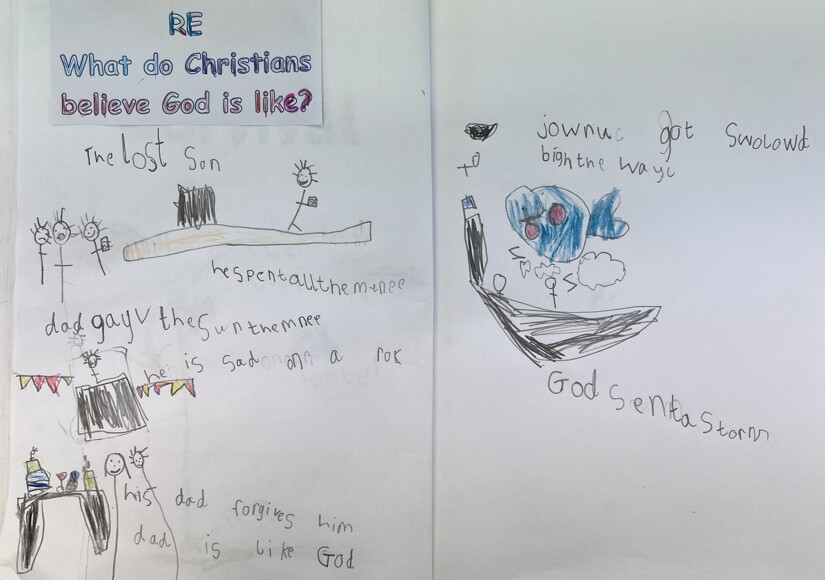 RE
What do Christians
believe God is like?
The lost Son
he spent all the mnee
dad gayv the Sun the mnee
he is sad on a rok
his dad forgives him
dad is like God
jownuc got Swolowd
bigh the wayl
God Sent a Storm